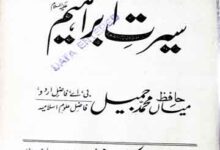 سیرت ابراہیم
علیہ السلام
DATA ENTERED
حافظ
میاں محمد جمیل
بی اے، فاضل اردو
فاضل علوم اسلامیہ